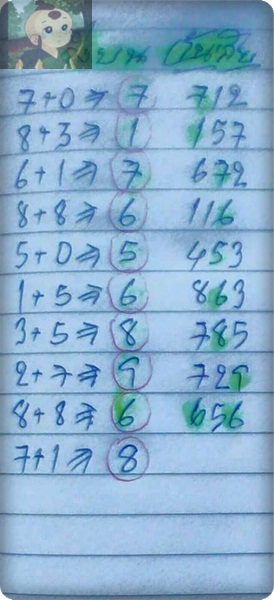 บน
7+0⇒ 7 712
8+3⇒ 1 157
6+1⇒ 7 672
8+8⇒ 6 116
5+0⇒ 5 453
1+5⇒ 6 863
3+5⇒ 8 785
2+7⇒ 9 729
8+8⇒ 6 656
7+1⇒ 8